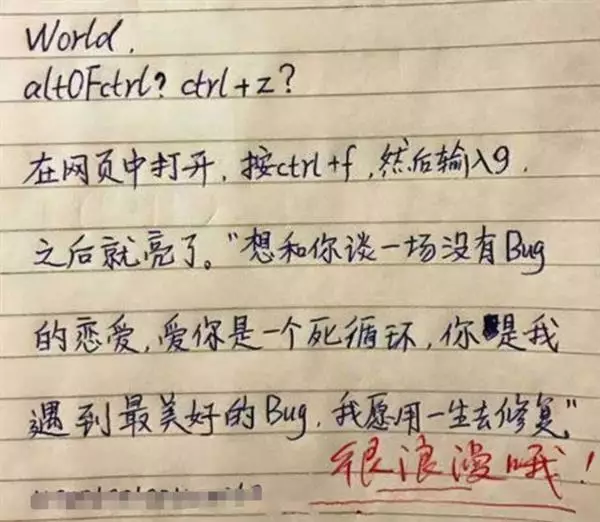 World,
alt0Fctrl? ctrl+z?
在网页中打开,按ctrl+f,然后输入9,
之后就亮了。“想和你谈一场没有Bug
的恋爱,爱你是一个死循环,你是我
遇到最美好的Bug,我愿用一生去修复”
很浪漫哦!